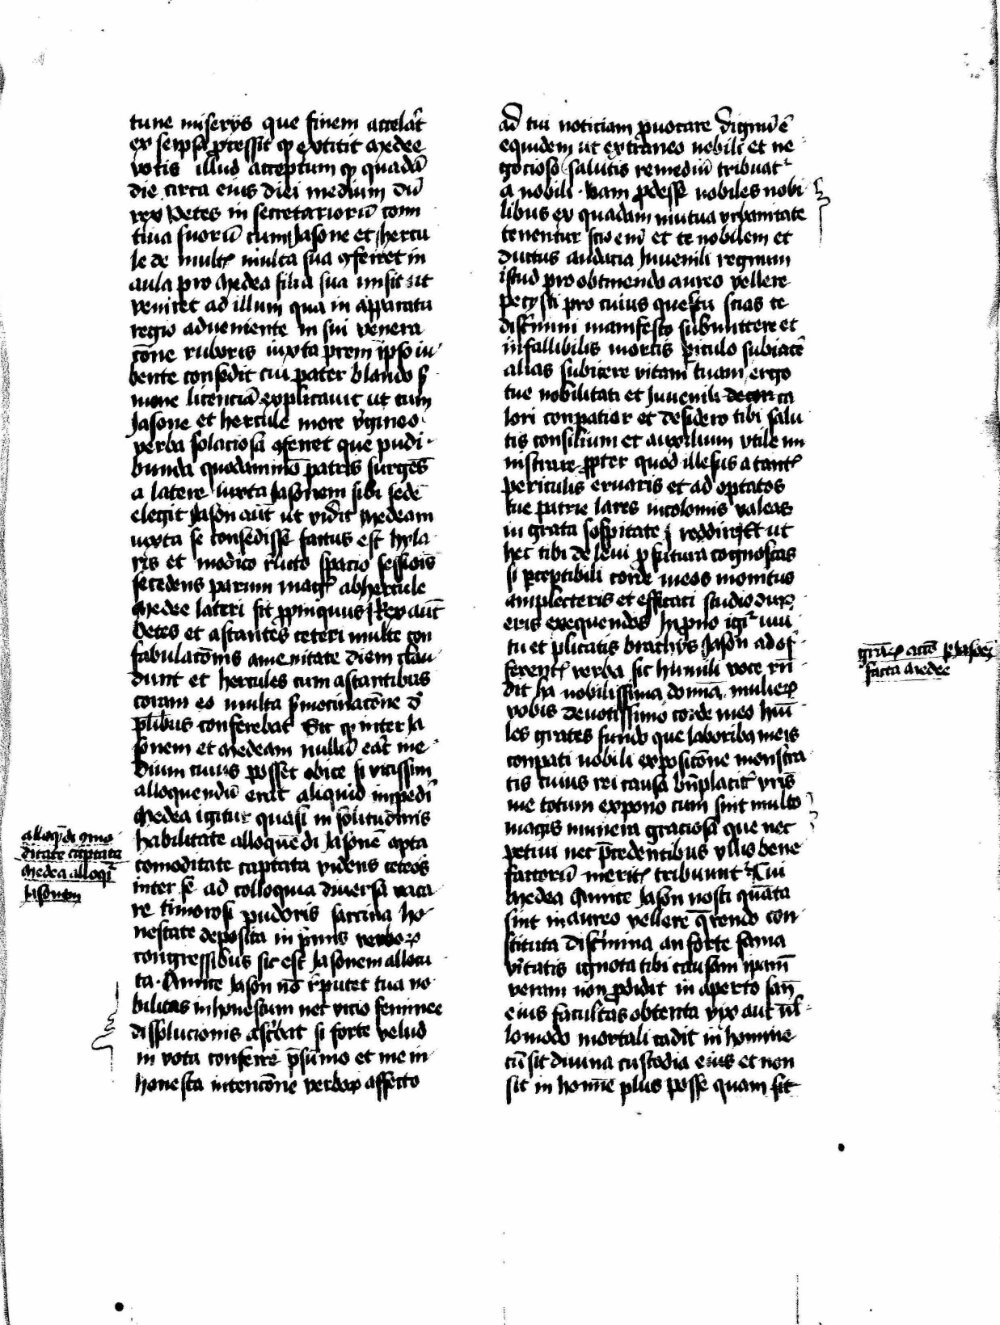 tune miserijs que finem accelerat
ex se ipsa processit quod extitit medee
votis illud acceptum quod quadam
die circa eius diei medium dum
rex Oetes in secretariorum comi
tiua suorum cum Jasone et hercu
le de multis multa sua conferret in
aula pro medea filia sua misit ut
veniret ad illum qua in apparatu
regio adueniente in sui venera
cone ruboris iuxta prem ipso iu
bente consedit cui pater blando s
mone licenciam explicauit ut cum
Jasone et hercule more virgineo
verba solaciosa conferret que pudi
bunda quodammodo patris surgens
a latere iuxta Jasonem sibi sedem
elegit Jason aut ut vidit medeam
iuxta se consedisse factus est hyla
ris et modico relicto spacio sessionis
secedens parum magis ab hercule
medee lateri fit propinquus Rex aut
Oetes et astantes ceteri multe con
fabulationis amenitate diem clau
dunt et hercules cum astantibus
coram eo multa sermocinacone de
pluribus conferebat Sic quod inter Ja
sonem et medeam nullum erat me
dium cuius posset obice si vicissim
alloquendum erat aliquid impediri
medea igitur quasi in solitudinis
habilitate alloquendi Jasonem apta
comoditate captata videns ceteros
inter se ad colloquia diuersa vaca
re timorosi pudoris sarcina ho
nestate deposita in primis verborum
congressibus sic est Jasonem allocu
ta Amice Jason non reputet tua no
bilitas inhonestum nec vicio feminee
dissolucionis ascribat si forte velud
in vota conferre presumo et me in
honesta intencone verborum affecto
alloquendi como
ditate captata
medea alloquitur
Jasonem
ad tui noticiam prouocare dignum est
equidem ut extraneo nobili et ne
gocioso salutis remedium tribuatur
a nobili nam prodesse nobiles nobi
libus ex quadam mutua vrbanitate
tenentur scio enim et te nobilem et
ductus audacia Juuenili regnum
istud pro obtinendo aureo vellere
pecysti pro cuius questu scias te
discrimini manifesto submittere et
infallibilis mortis periculo subiacere
alias subicere vitam tuam ergo
tue nobilitati et Juuenili ca
lori conpatior et desidero tibi salu
tis consilium et auxilium vtile mi
nistrare propter quod illesus a tantis
periculis eruaris et ad optatos
tue patrie lares incolomis valeas
in grata sospitate reddi et ut
hec tibi de leui profutura cognoscas
si perceptibili corde meos monitus
amplecteris et efficaci studio dux
eris exequendos In prono igitur vul
tu et plicatis brachijs Jason ad of
ferentis verba sic humili voce rn
dit ha nobilissima domina mulierum
vobis deuotissimo corde meo humi
les grates fundo que laboribus meis
conpati nobili exposicione monstra
tis cuius rei causa beneplacitis vestris
me totum expono cum sint multo
magis munera graciosa que nec
petiui nec precedentibus vllis bene
factorum meritis tribuuntur Cui
medea Amice Jason nosti quanta
sint in aureo vellere querendo con
stituta discrimina an forte fama
veritatis ignota tibi causam ipam
veram non prodidit in aperto sane
eius facultas obtenta vix aut nul
lo modo mortali cadit in homine
cum sit diuina custodia eius et non
sit in homine plus posse quam sit
facta medee